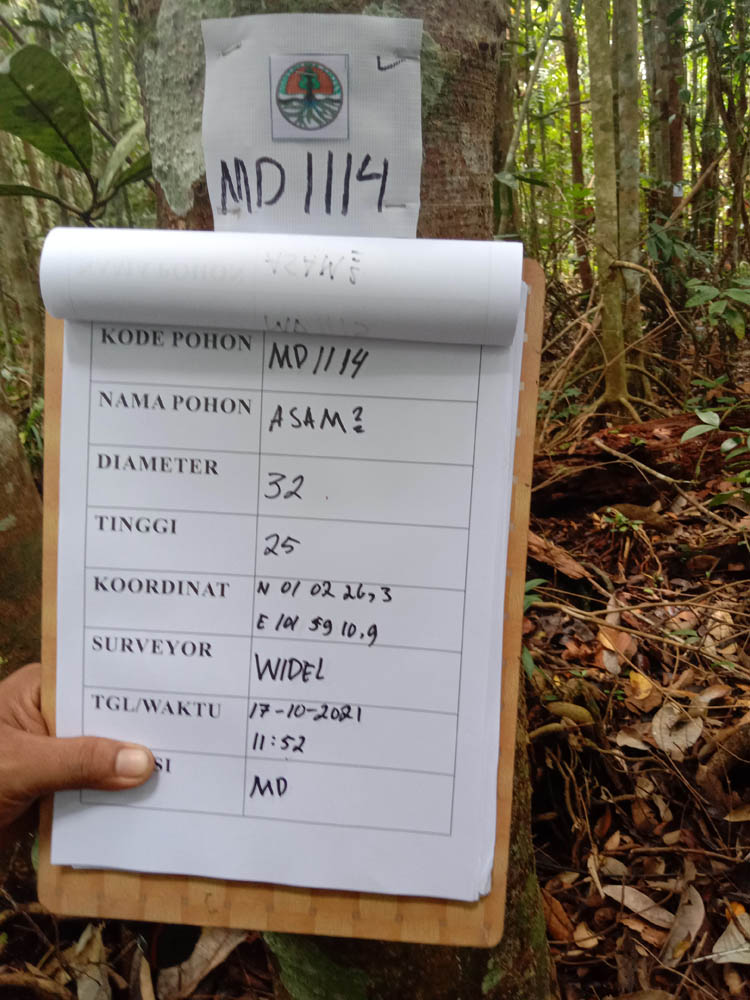 MD 1114
KODE POHON MD 1114
NAMA POHON ASAM2
DIAMETER 32
TINGGI 25
KOORDINAT N 01 02 26,3
E 101 59 10,9
SURVEYOR WIDEL
TGL/WAKTU 17-10-2021
11:52
SI MD